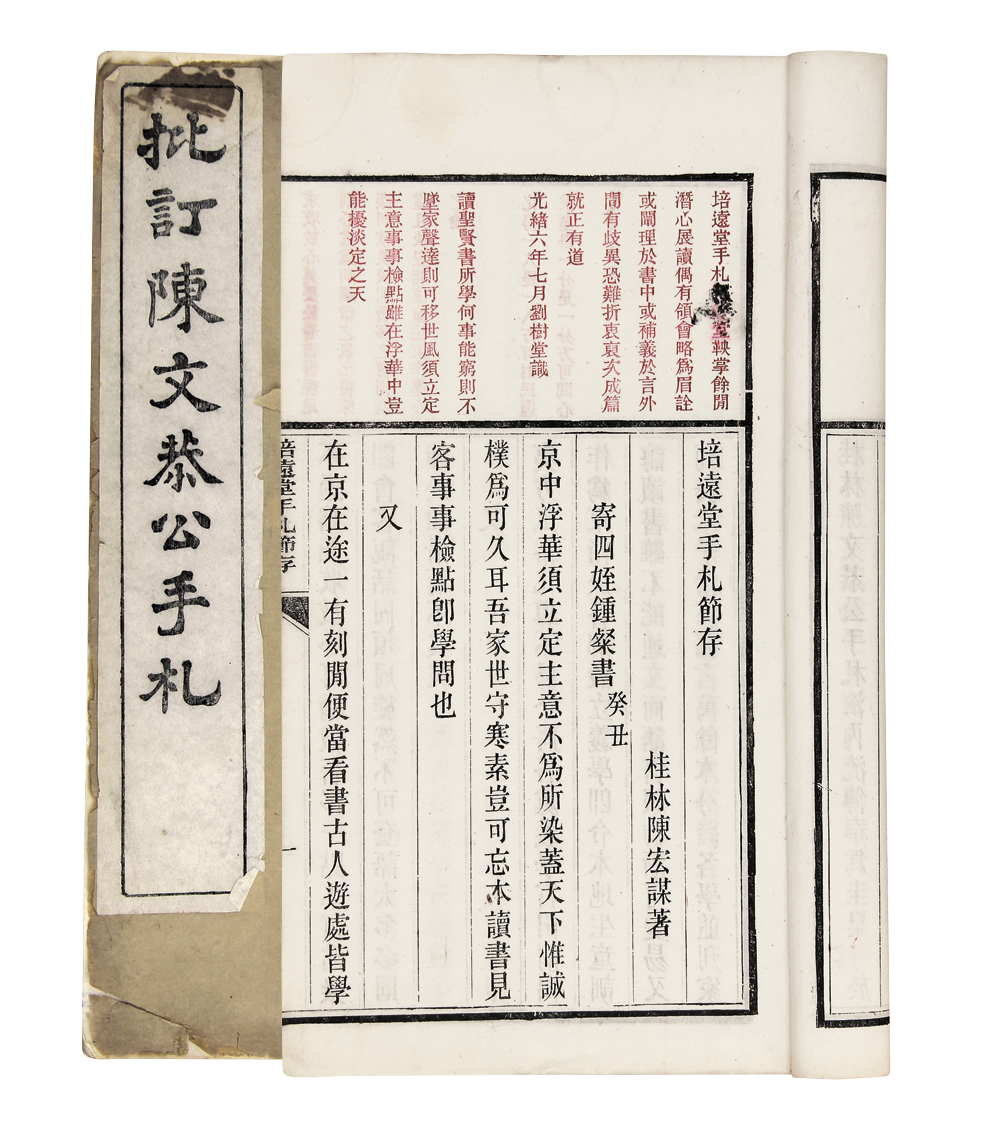 批訂陳文恭公手札
培遠堂手札
鞅掌餘閒
潛心展讀偶有領會略為眉詮
或闡理於書中或補義於言外
間有歧異恐難折衷裒次成篇
就正有道
光緒六年七月劉樹堂識
讀聖賢書所學何事能窮則不
墜家聲達則可移世風須立定
主意事事檢點雖在浮華中豈
能擾淡定之天
培遠堂手札節存
桂林陳宏謀著
寄四姪鍾粲書癸丑
京中浮華須立定主意不爲所染蓋天下惟誠
樸爲可久耳吾家世守寒素豈可忘本讀書見
客事事檢點卽學問也
又
在京在途一有刻閒便當看書古人遊處皆學
培遠堂手札節存
一